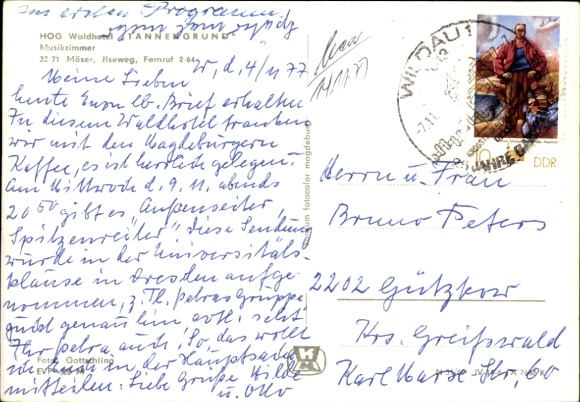 im ersten Programm.
HOG Waldhotel "TANNENGRUND"
Musikzimmer
32 71 Möser, Ilseweg, Fernruf 2 64
W, d, 4/11 77
Meine Lieben
heute Euren lb. Brief erhalten
In diesem Waldhotel tranken
wir mit den Magdeburgern
Kaffee, es ist herrlich gelegen.
Am Mittwoch d. 9.11. abends
20 00 gibt es "Außenseiter,
Spitzenreiter" diese Sendung
wurde in der Universitäts-
klause in Dresden aufge
nommen, z. Tl. Petras Gruppe
guckt genau hin evtl. seht
Ihr Petra auch. So, das wollt
ich Euch in der Hauptsache
mitteilen. Liebe Grüße, Hilde
u. Otto
Foto: Gottschling
14.11.77
WILDAU 1
-7.11.
JAHRE
10
DDR
Herrn u. Frau
Bruno Peters
2202 Gützkow
Krs. Greifswald
Karl Marx Str, 60
fotocolor magdeburg